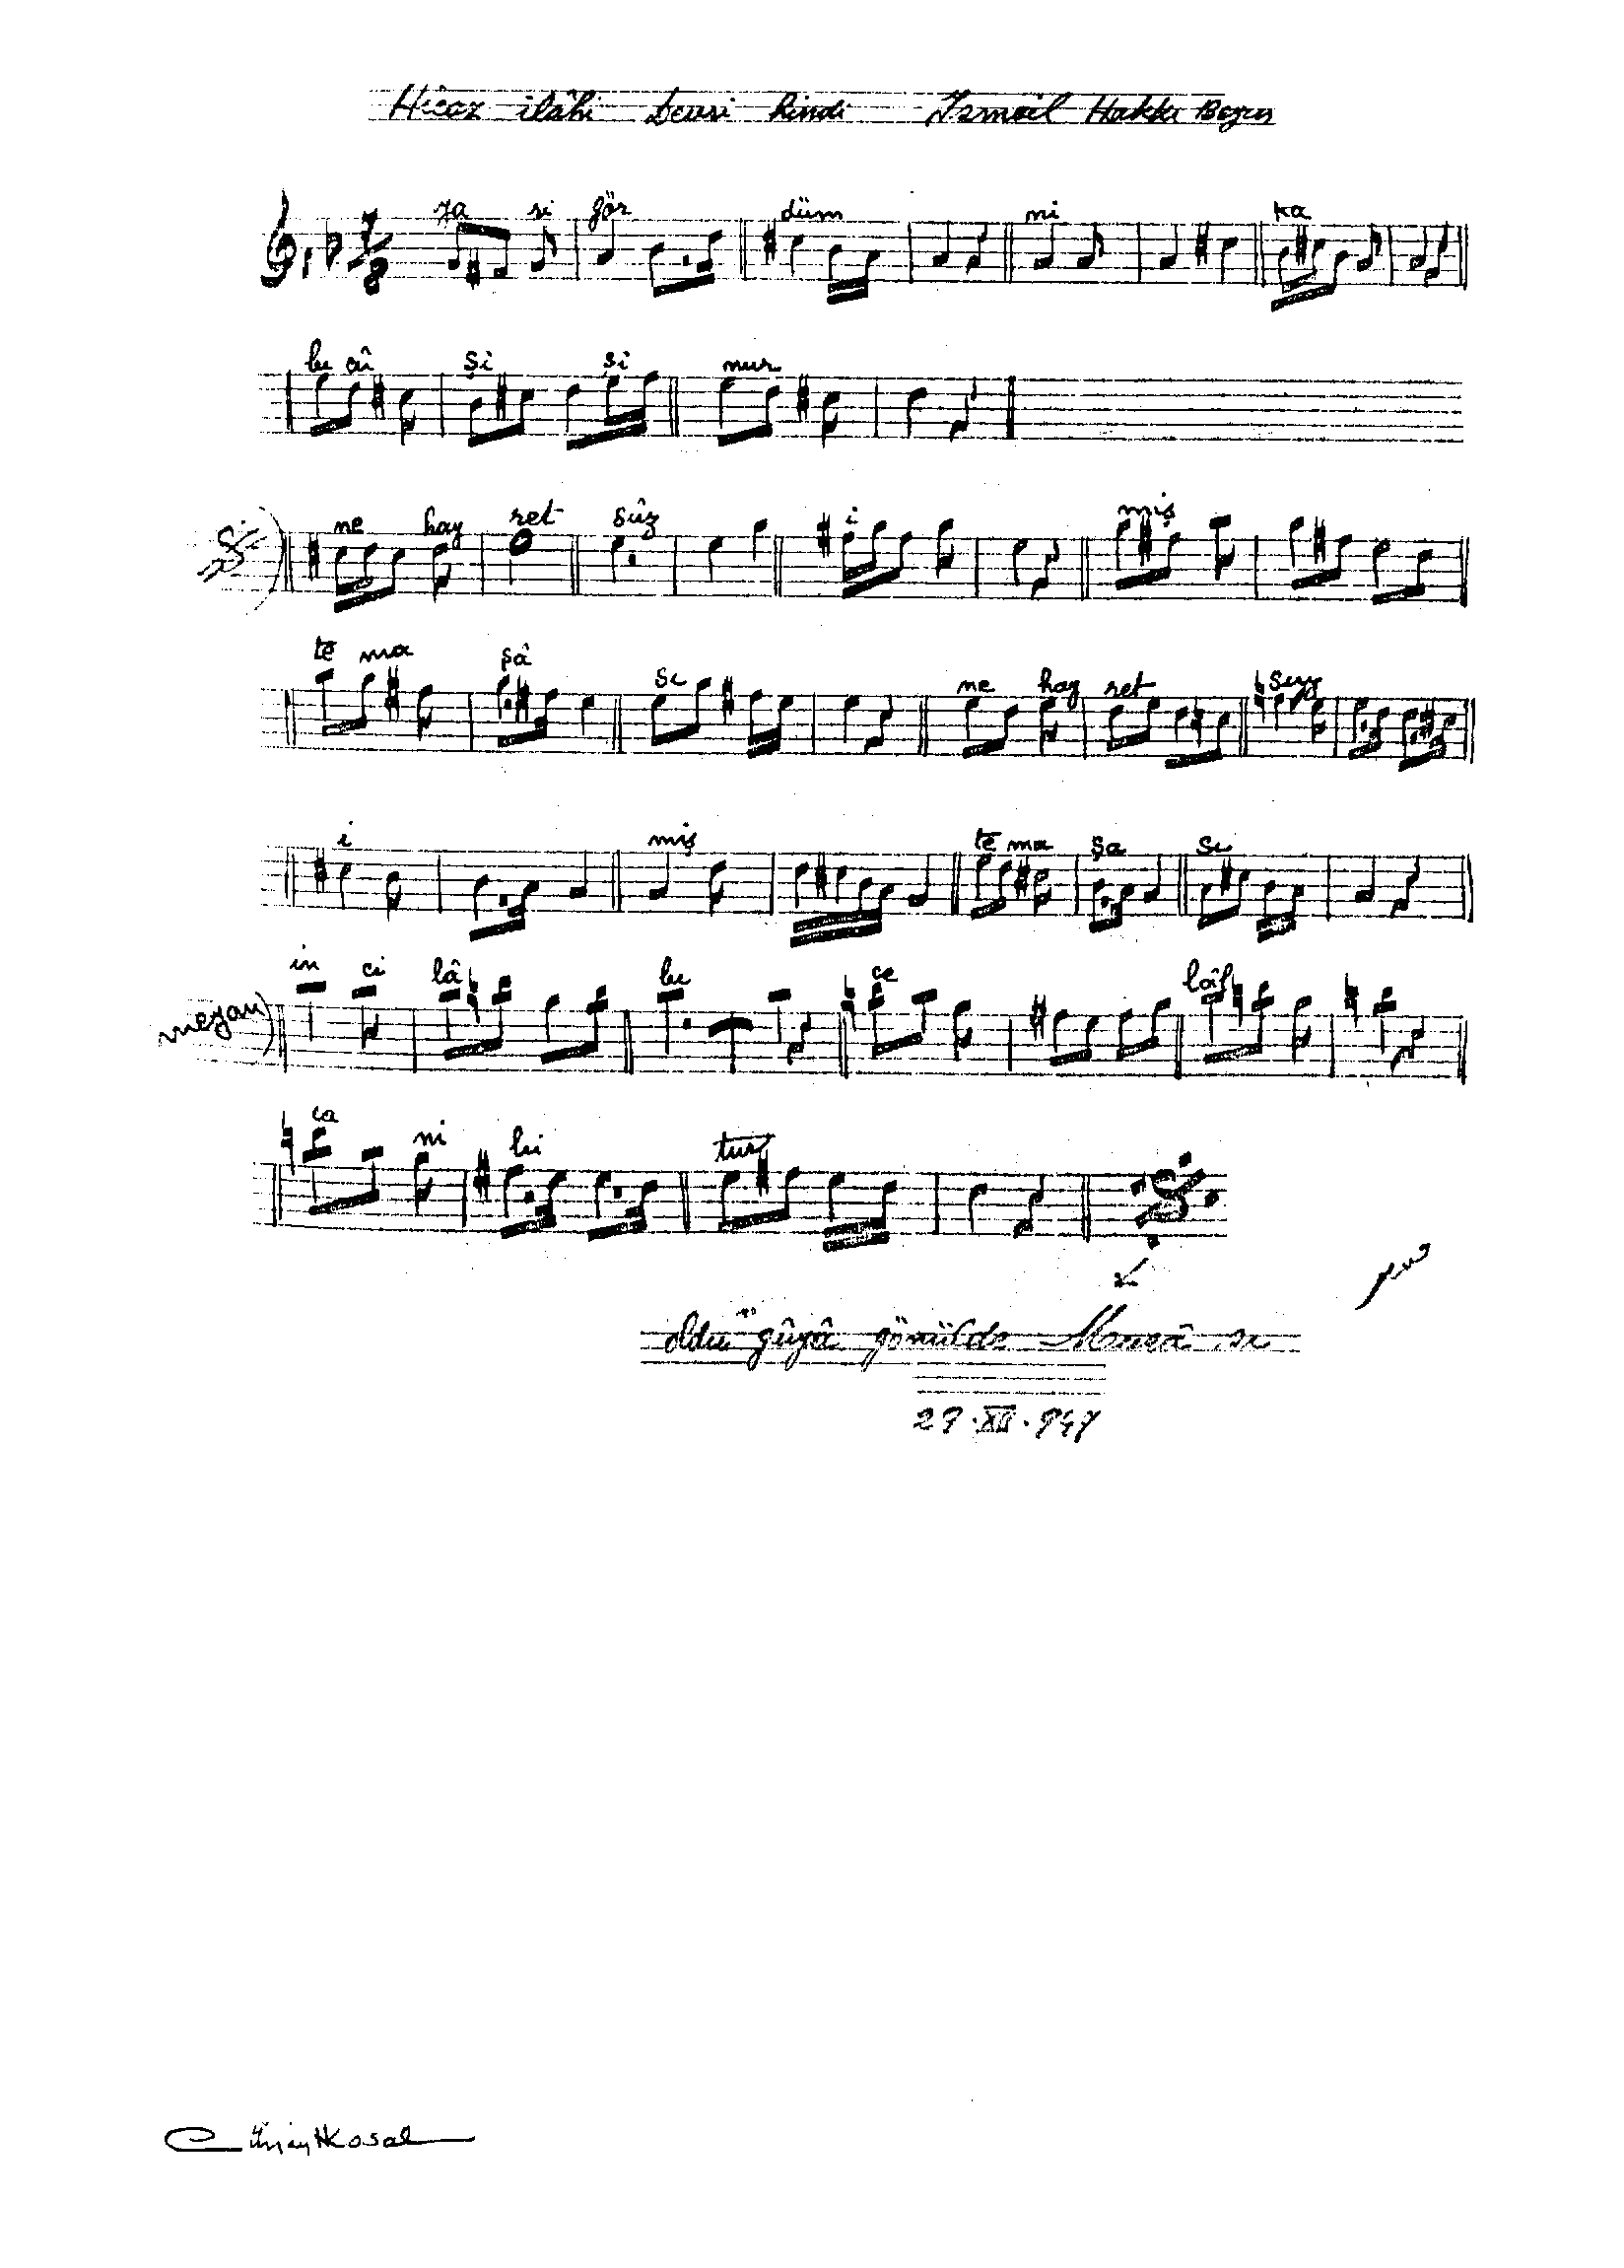 Hicaz ilâhi Devri hindi İsmail Hakkı Beyin
7/8
ya si gör düm ni ka
bu cû şi şi nur
ne hay ret sûz i miş
te ma şâ sı ne hay ret suz
i miş te ma şa sı
meyan
in ci lâ bu ce lâl
ca ni bi tur
oldu gûyâ gönülde
29.XII.947